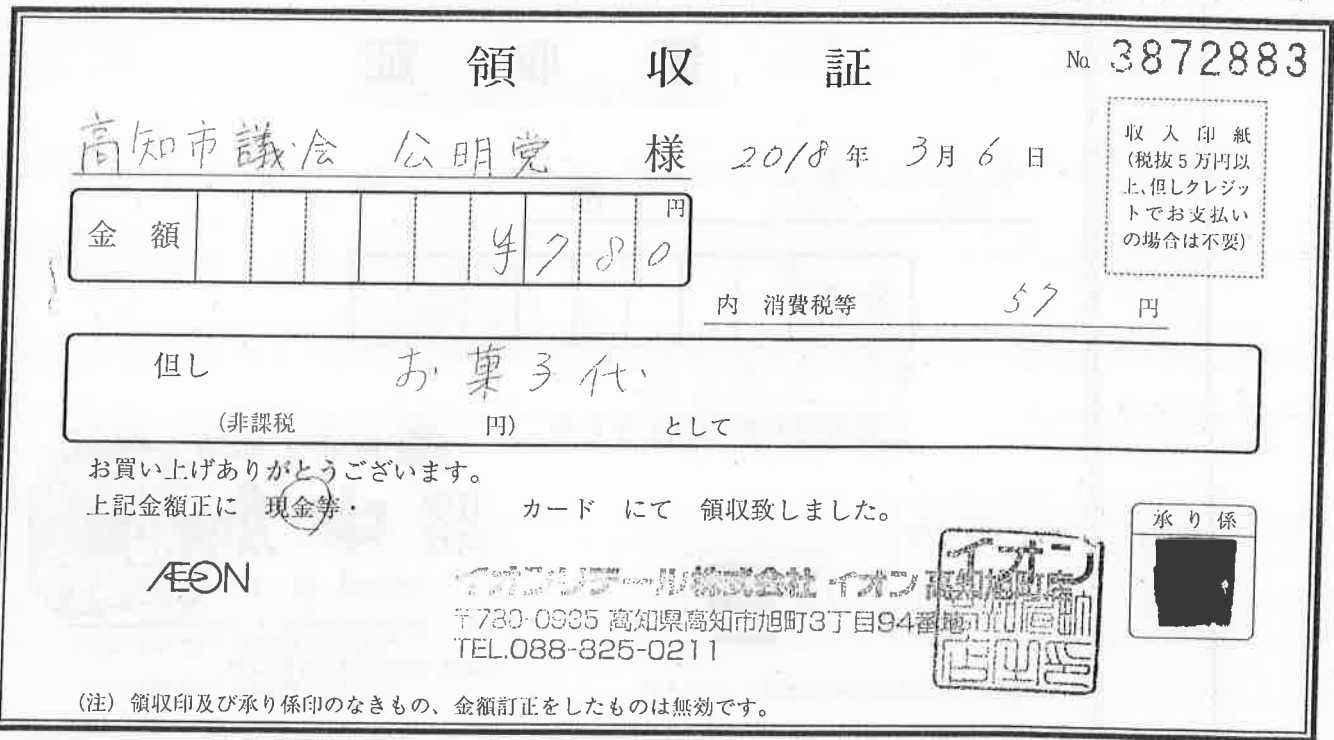 領収証
No. 3872883
高知市議会 公明党 様 2018年 3月 6日
収入印紙
(税抜5万円以
上、但しクレジッ
トでお支払い
の場合は不要)
金額 ¥780 円
内 消費税等 57 円
但し お菓子代
(非課税 円) として
お買い上げありがとうございます。
上記金額正に 現金等・ カード にて 領収致しました。
承り係
ÆON
イオン
イオンリテール株式会社 イオン高知旭町店
〒780-0935 高知県高知市旭町3丁目94番地
TEL.088-825-0211
(注) 領収印及び承り係印のなきもの、金額訂正をしたものは無効です。